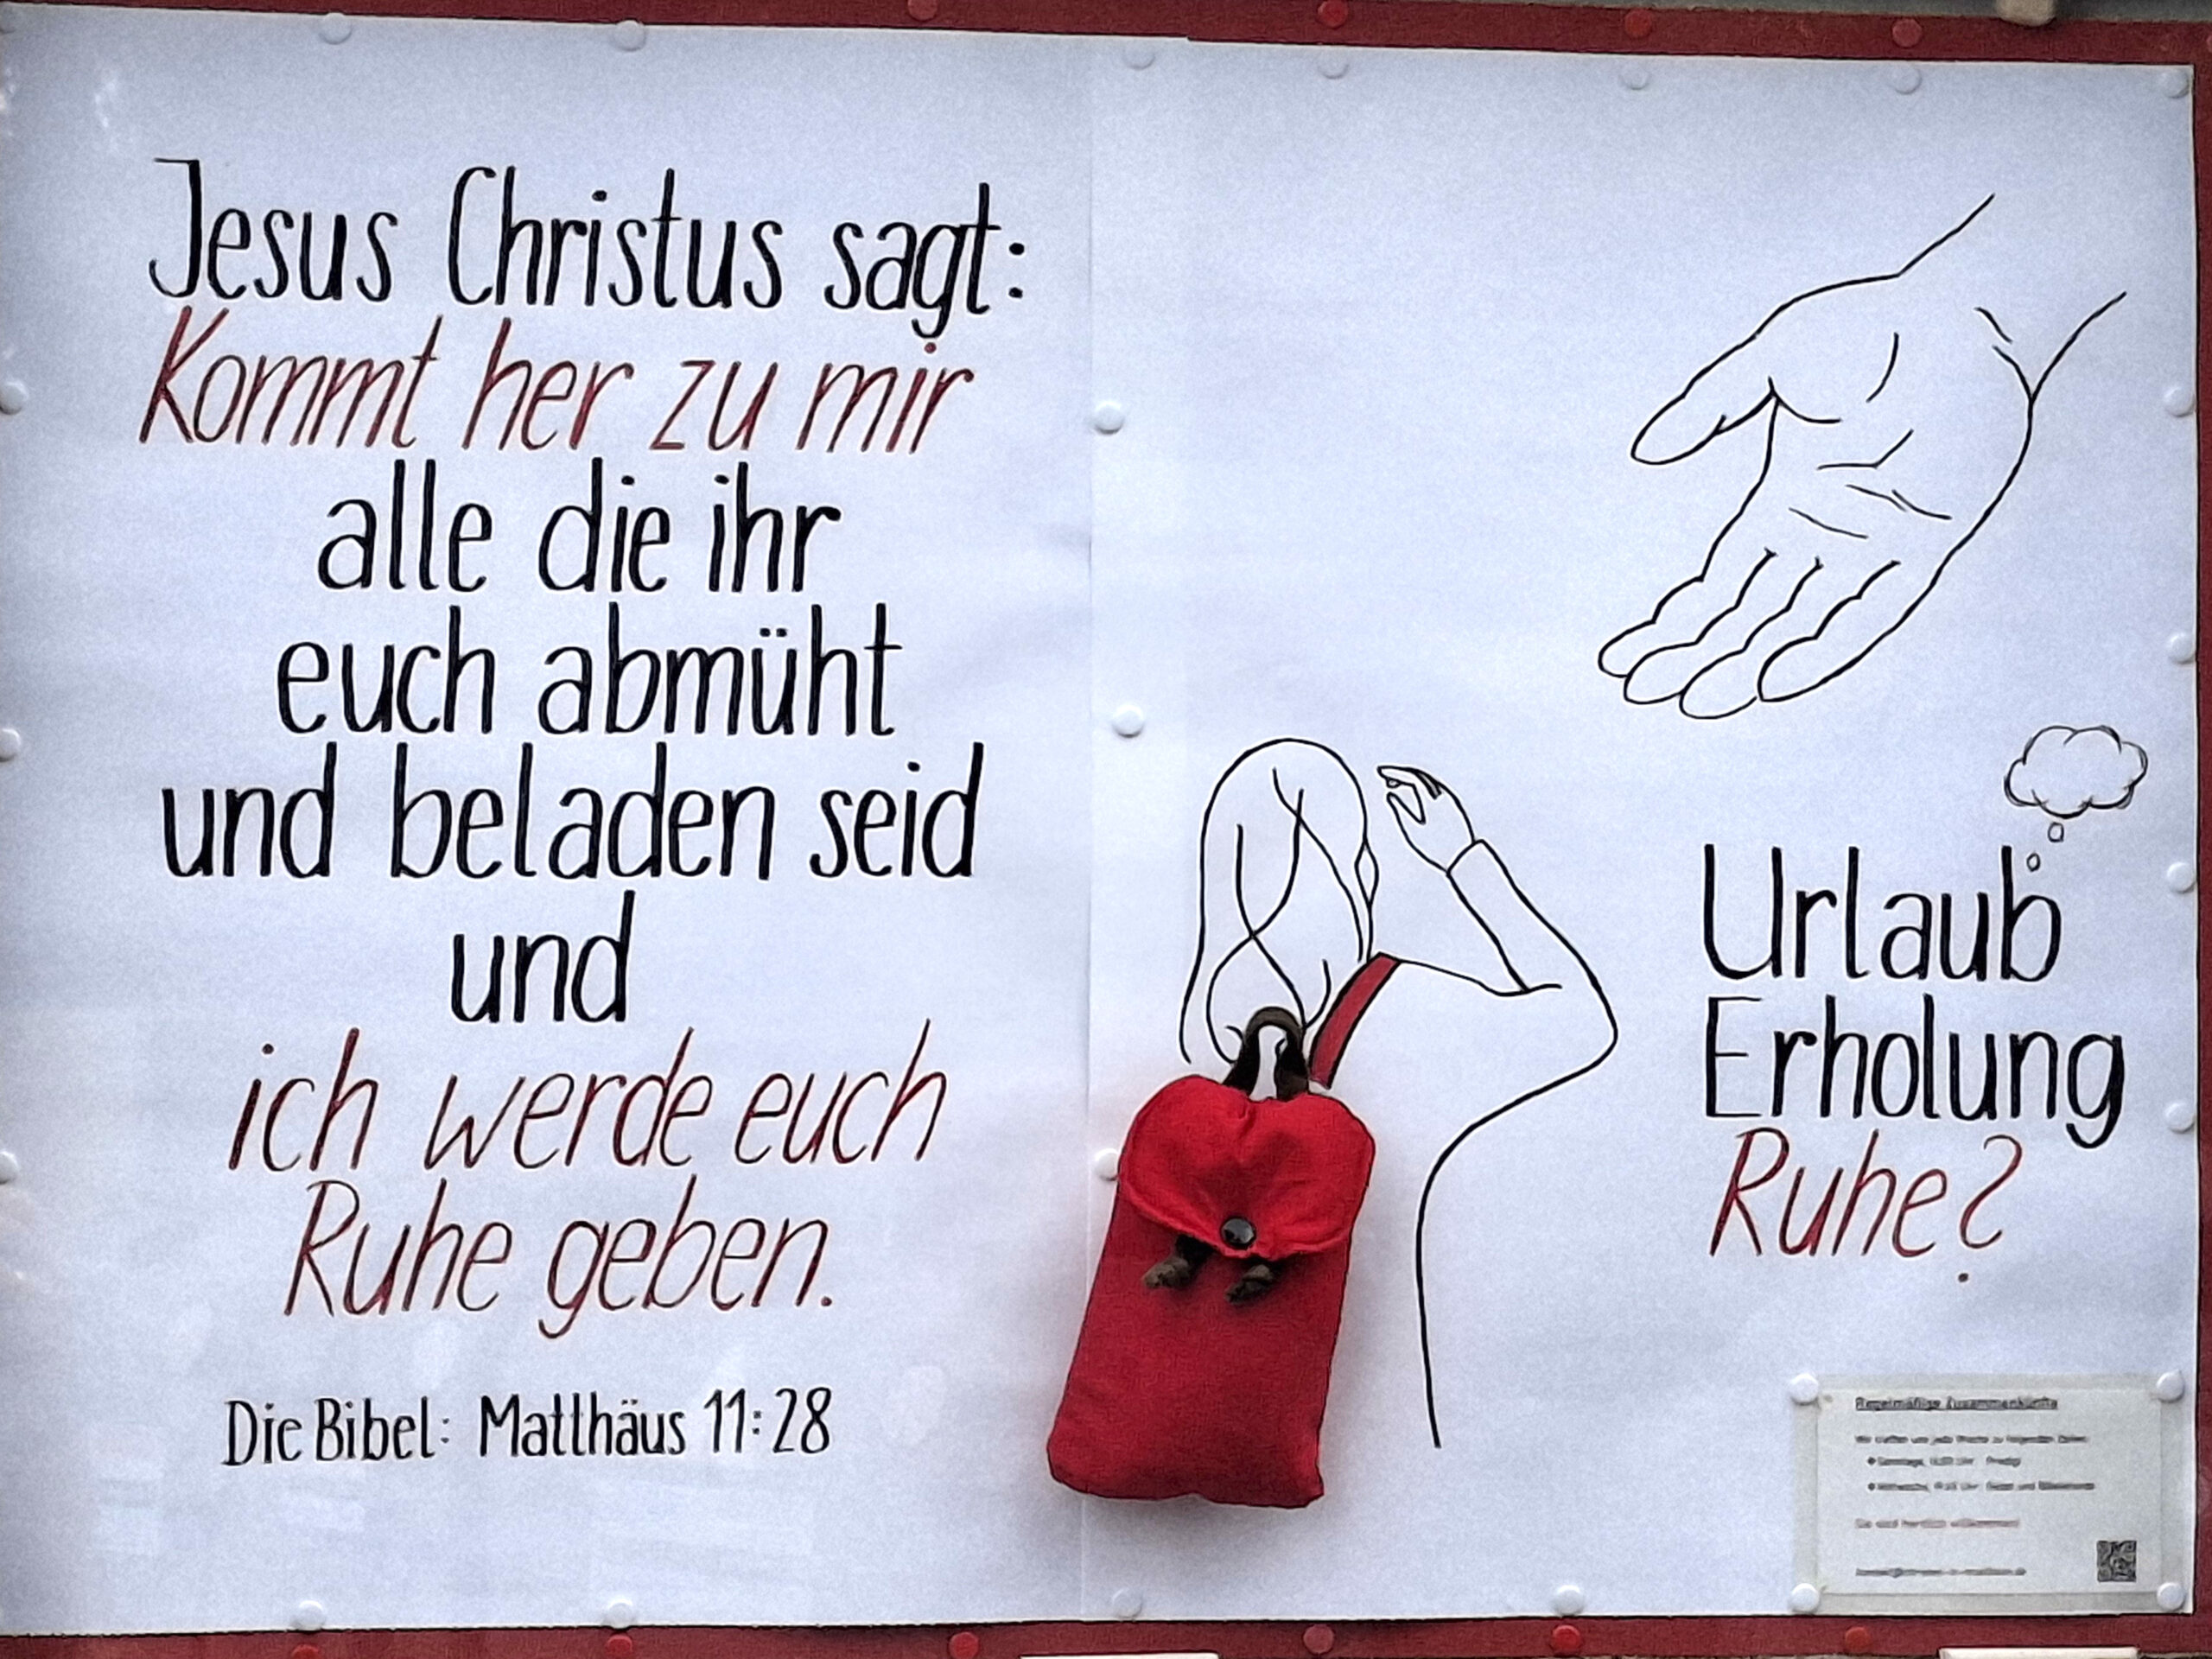 Jesus Christus sagt:
Kommt her zu mir
alle die ihr
euch abmüht
und beladen seid
und
ich werde euch
Ruhe geben.
Die Bibel: Matthäus 11:28
Urlaub
Erholung
Ruhe?
Regelmäßige Zusammenkünfte